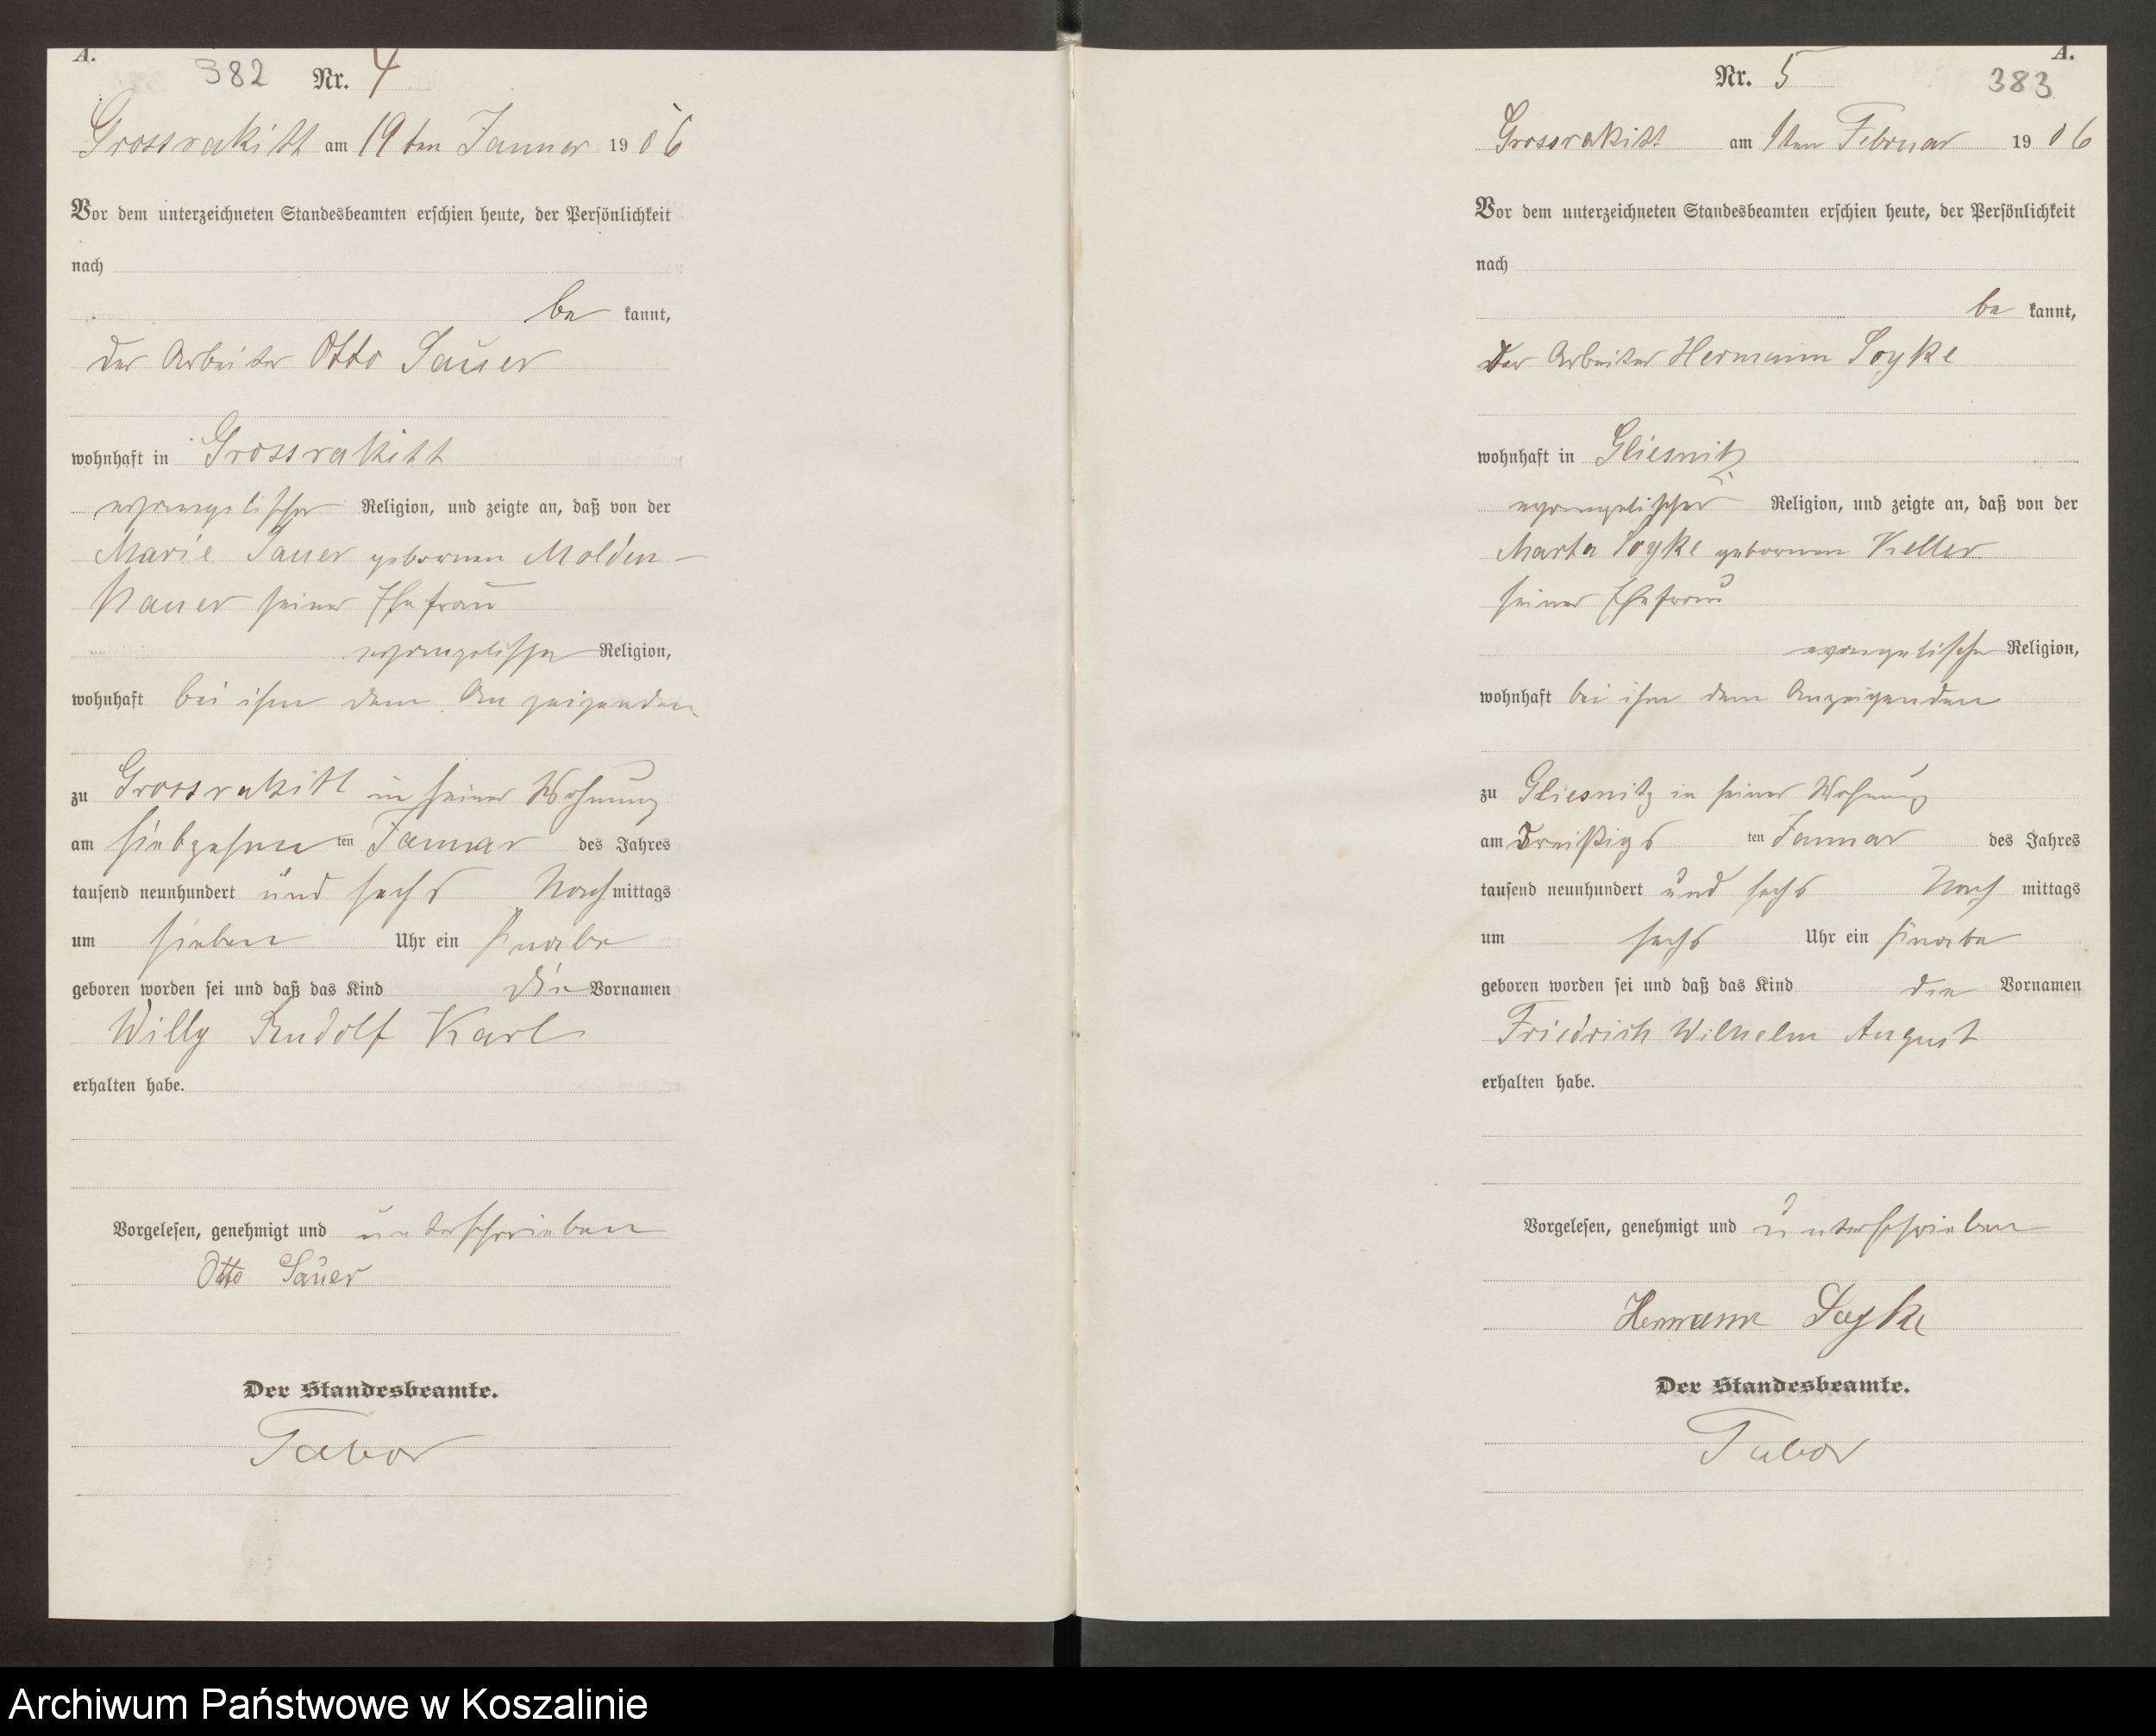 A.
382 Nr. 4
Grossrakitt am 19ten Januar 1906
Vor dem unterzeichneten Standesbeamten erschien heute, der Persönlichkeit
nach
be kannt,
der Arbeiter Otto Sauer
wohnhaft in Grossrakitt
evangelischer Religion, und zeigte an, daß von der
Marie Sauer gebornen Molden-
hauer seiner Ehefrau
evangelischer Religion,
wohnhaft bei ihm dem Anzeigenden
zu Grossrakitt in seiner Wohnung
am siebzehnten Januar des Jahres
tausend neunhundert und sechs Nachmittags
um sieben Uhr ein Knabe
geboren worden sei und daß das Kind die Vornamen
Willy Rudolf Karl
erhalten habe.
Vorgelesen, genehmigt und unterschrieben
Otto Sauer
Der Standesbeamte.
Tabor
A.
Nr. 5 383
Grossrakitt am 1ten Februar 1906
Vor dem unterzeichneten Standesbeamten erschien heute, der Persönlichkeit
nach
be kannt,
Der Arbeiter Hermann Soyke
wohnhaft in Gliesnitz
evangelischer Religion, und zeigte an, daß von der
Marta Soyke gebornen Keller
seiner Ehefrau
evangelischer Religion,
wohnhaft bei ihm dem Anzeigenden
zu Gliesnitz in seiner Wohnung
am Dreißigs ten Januar des Jahres
tausend neunhundert und sechs Nach mittags
um sechs Uhr ein Knabe
geboren worden sei und daß das Kind die Vornamen
Friedrich Wilhelm August
erhalten habe.
Vorgelesen, genehmigt und unterschrieben
Hermann Soyke
Der Standesbeamte.
Tabor
Archiwum Państwowe w Koszalinie